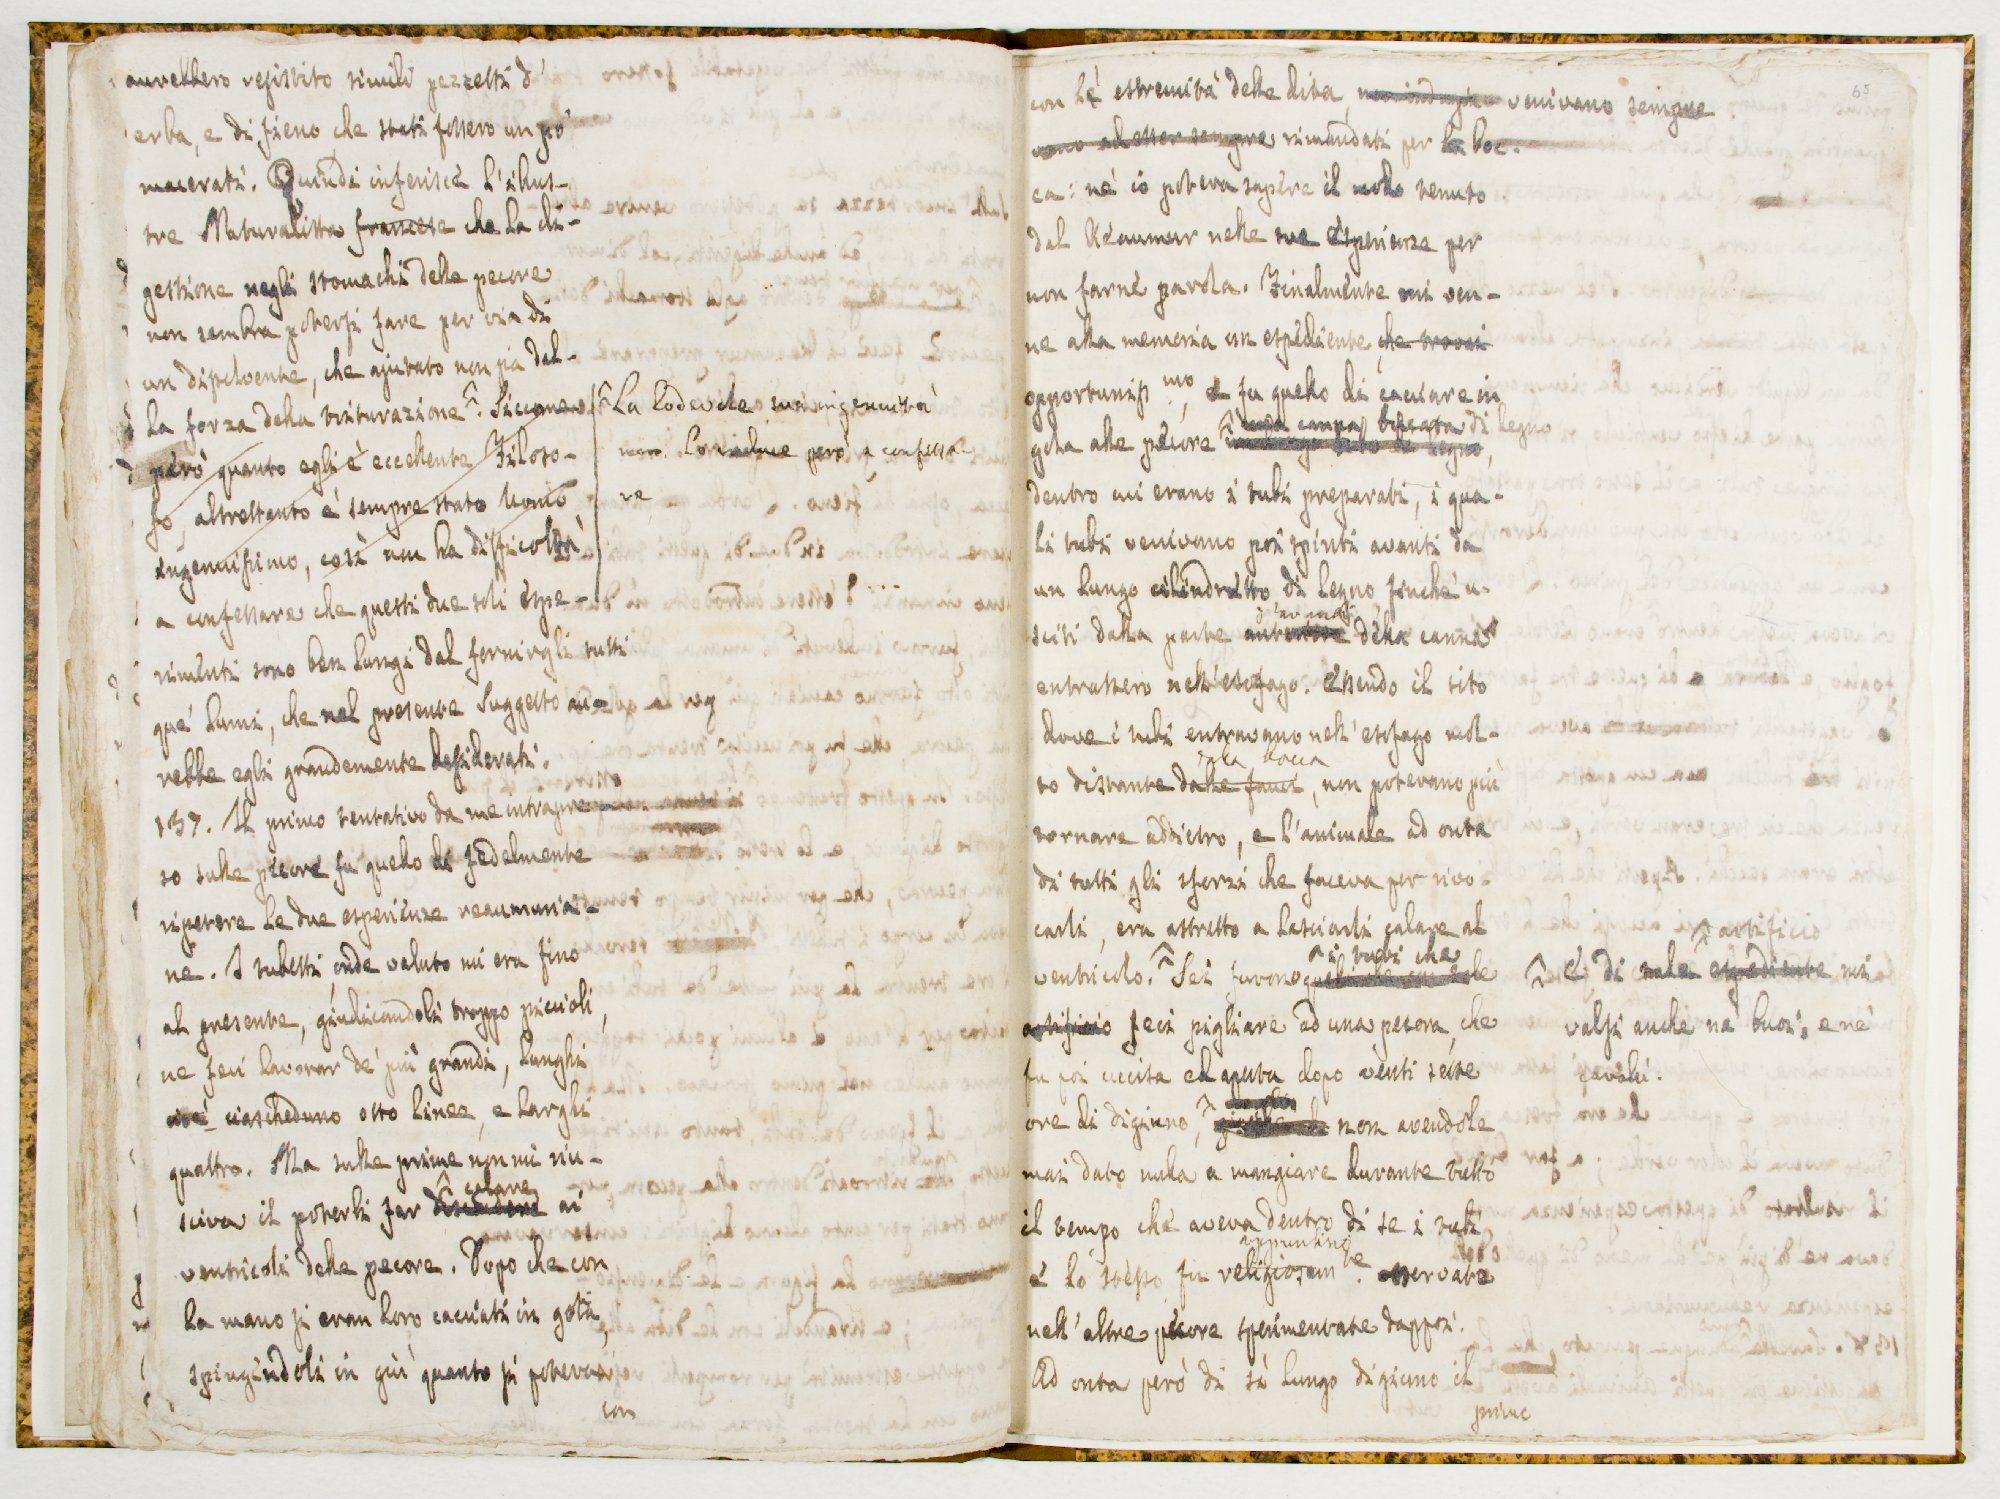 avrebbero resistito simili pezzetti d'
erba, e di fieno che stati fossero un po'
macerati. Quindi inferisce l'illus-
tre Naturalista francese che la di-
gestione negli stomachi delle pecore
non sembra potersi fare per via di
un dissolvente, che ajutato non sia dal-
la forza della triturazione ^. Siccome
però quanto egli è eccellente Filoso-
fo, altrettanto è sempre stato Uomo
ingenuissimo, così non ha difficoltà
a confessare che questi due soli espe-
rimenti sono ben lungi dal fornirgli tutti
que' lumi, che nel presente suggetto au-
rebbe egli grandemente desiderati.
^ La lodevole sua ingenuità
lo induce però a confessa-
re
137. Il primo tentativo da me intrapre-
so sulle pecore fu quello di fedelmente
ripetere le due esperienze reaumuria-
ne. I tubetti, onde valuto mi era fino
al presente, giudicandoli troppo piccioli,
ne feci lavorar de' più grandi, lunghi
cioè ciascheduno otto linee, e larghi
quattro. Ma sulle prime non mi riu-
^ calare
sciva il poterli far discendere ai
ventricoli delle pecore. Dopo che con
la mano si eran loro cacciati in gola,
spingendoli in giù quanto si poteva
con
65
con le estremità delle dita, venivano sempre
vano ad esser sempre rimandati per la boc-
ca: nè io poteva sapere il modo tenuto
dal Réaumur nelle sue esperienze per
non farne parola. Finalmente mi ven-
ne alla memoria un espediente che trovai
opportuniss.mo, e fu quello di cacciare in
una canna bucata di legno
gola alle pecore ^ un lungo tubo di legno,
dentro cui erano i tubi preparati, i qua-
li tubi venivano poi spinti avanti da
un lungo cilindretto di legno finchè u-
sciti dalla parte anteriore della canna
entrassero nell'esofago. Essendo il sito
dove i tubi entravano nell'esofago mol-
dalla bocca
to distante dalle fauci, non potevano più
tornare addietro, e l'animale ad onta
di tutti gli sforzi che faceva per rivo-
carli, era astretto a lasciarli calare al
^ i tubi che
ventricolo. ^ Sei furono quelli che con tale
artificio feci pigliare ad una pecora, che
fu poi uccisa ed aperta dopo venti sette
ore di digiuno, ^ non avendole
mai dato nulla a mangiare durante tutto
il tempo che aveva dentro di se i tubi,
appuntino
e lo stesso fu religiosam.te osservato
nell'altre pecore sperimentate dappoi.
Ad onta però di sì lungo digiuno il
prime
^ artificio
^ E di tale espediente mi
valsi anche ne' buoi, e ne'
cavalli.